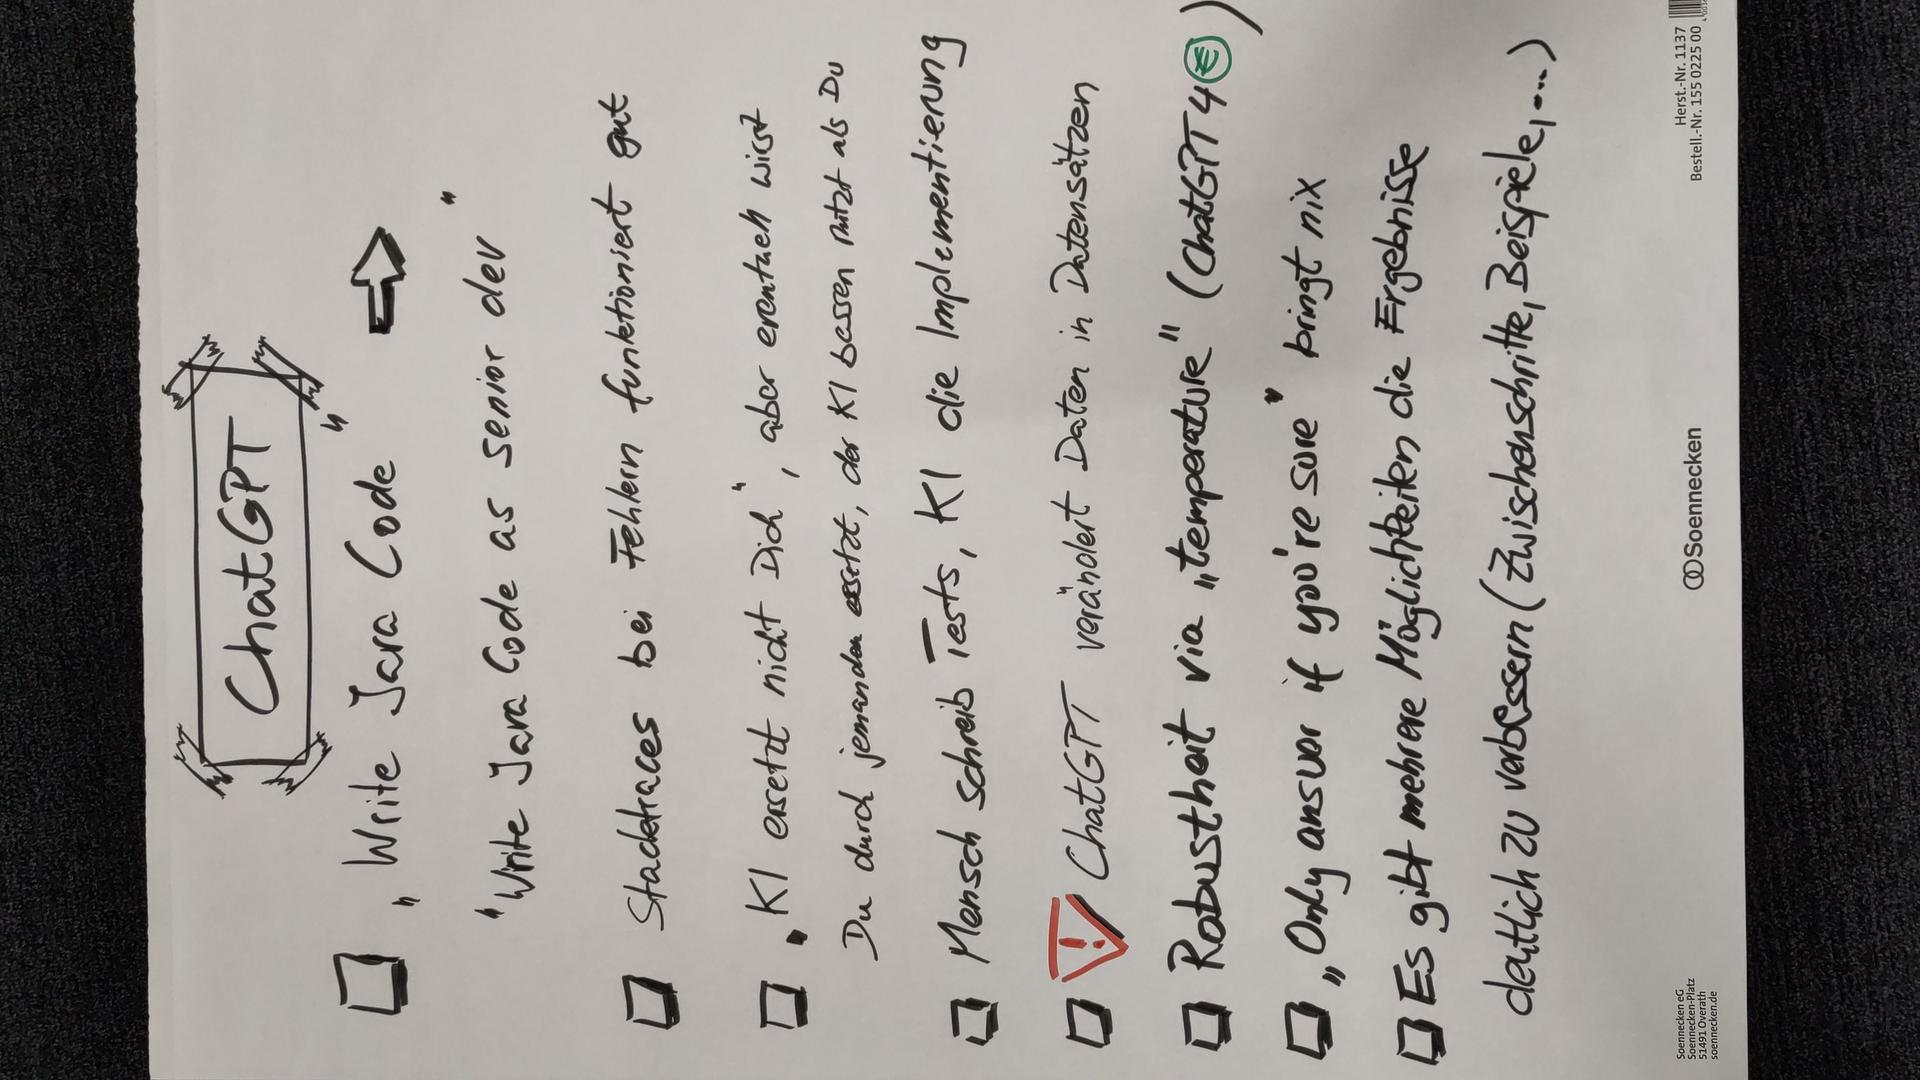 ChatGPT
„Write Java Code"
"Write Java Code as senior dev"
Stacktraces bei Fehlern funktioniert gut
„KI ersetzt nicht Dich", aber eventuell wirst
Du durch jemanden ersetzt, der KI besser nutzt als Du
Mensch schreib Tests, KI die Implementierung
! ChatGPT verändert Daten in Datensätzen
Robustheit via „temperature" (ChatGPT 4 €)
„Only answer if you're sure" bringt nix
Es gibt mehrere Möglichkeiten die Ergebnisse
deutlich zu verbessern (Zwischenschritte, Beispiele, ...)
Soennecken eG
Soennecken-Platz
51491 Overath
soennecken.de
Soennecken
Herst.-Nr. 1137
Bestell.-Nr. 155 0225 00